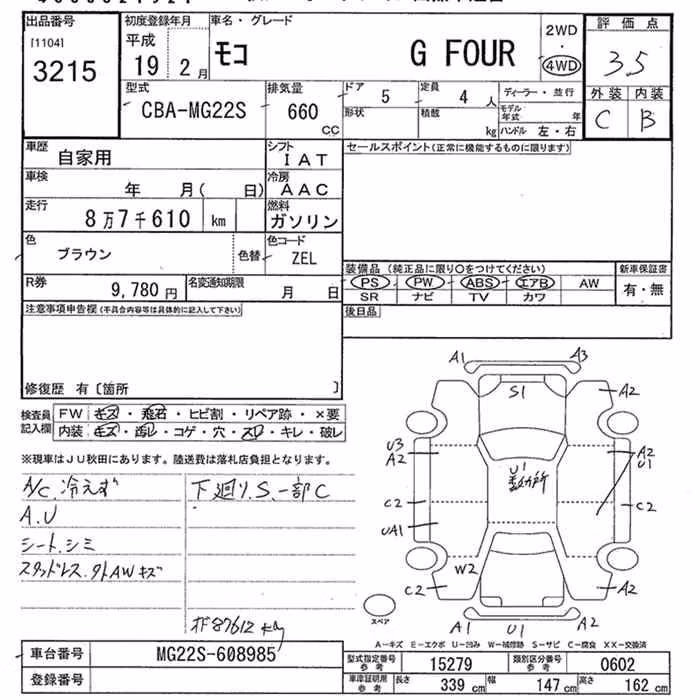 出品番号
[1104]
3215
初度登録年月
平成
19 2 月
車名・グレード
モコ G FOUR
2WD
・
4WD
評価点
3.5
外装 内装
C B
型式
CBA-MG22S
排気量
660
CC
ドア 5
定員 4 人
ディーラー・並行
形状
積載 kg
モデル年式 年
ハンドル 左・右
車歴
自家用
シフト
IAT
セールスポイント(正常に機能するものに限ります)
車検
年 月( 日)
冷房
AAC
走行
8万7千610 km
燃料
ガソリン
色
ブラウン
色替
色コード
ZEL
装備品 (純正品に限り○をつけてください)
新車保証書
PS PW ABS エアB AW
有・無
SR ナビ TV カワ
R券
9,780 円
名変通知期限
月 日
後日品
注意事項申告欄(不具合内容等は具体的に記入して下さい)
修復歴 有〔箇所 〕
検査員記入欄
FW キズ・飛石・ヒビ割・リペア跡・×要
内装 キズ・汚レ・コゲ・穴・スレ・キレ・破レ
※現車はJU秋田にあります。陸送費は落札店負担となります。
A/C.冷えず
A.U
シート.シミ
スタッドレス.夕トAWキズ
下廻リ.S.一部C
87612 kg
A1 A3
S1
A2
U3
A2
A2
U1
U1
数ヶ所
C2
C2
UA1
W2
C2
A2
スペア
A1 U1 A2
A-キズ E-エクボ U-凹み W-補修跡 S-サビ C-腐食 XX-交換済
車台番号
MG22S-608985
登録番号
型式指定番号
参考
15279
類別区分番号
参考
0602
車庫証明用
参考
長さ 339 cm
幅 147 cm
高さ 162 cm